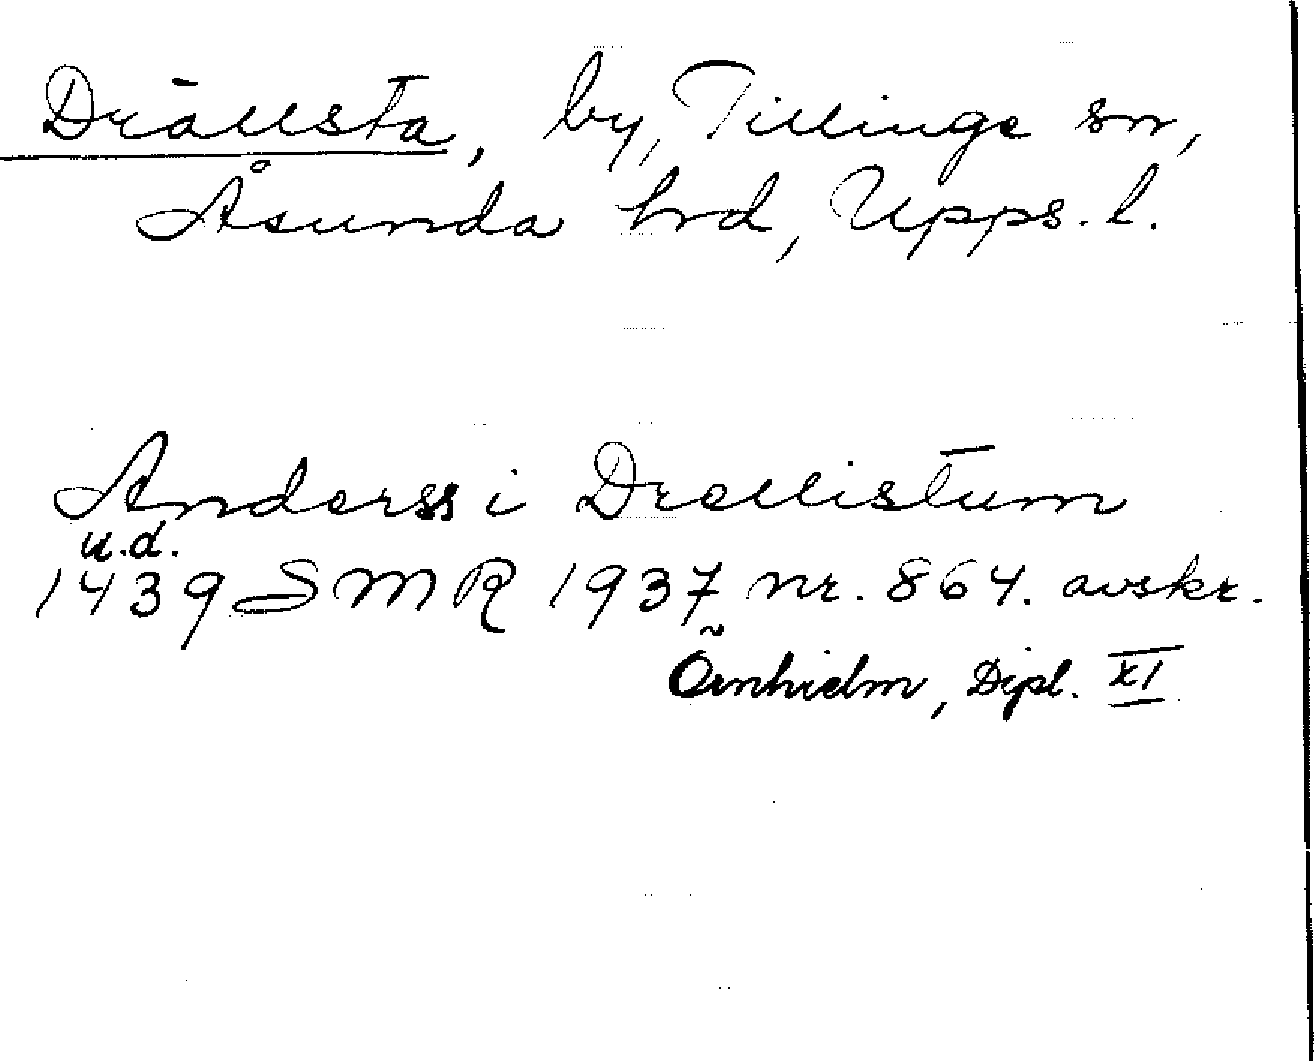 Drällsta, by, Tillinge sn,
Åsunda hrd, Upps. l.
Anderss i Drellistum
u.d.
1439 SMR 1937 nr. 864. avskr.
Örnhielm, Dipl. XI